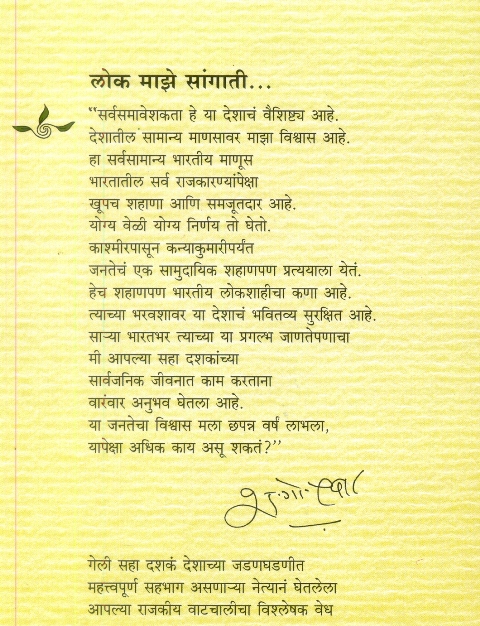 लोक माझे सांगाती...
“सर्वसमावेशकता हे या देशाचं वैशिष्ट्य आहे.
देशातील सामान्य माणसावर माझा विश्वास आहे.
हा सर्वसामान्य भारतीय माणूस
भारतातील सर्व राजकारण्यांपेक्षा
खूपच शहाणा आणि समजूतदार आहे.
योग्य वेळी योग्य निर्णय तो घेतो.
काश्मीरपासून कन्याकुमारीपर्यंत
जनतेचं एक सामुदायिक शहाणपण प्रत्ययाला येतं.
हेच शहाणपण भारतीय लोकशाहीचा कणा आहे.
त्याच्या भरवशावर या देशाचं भवितव्य सुरक्षित आहे.
साऱ्या भारतभर त्याच्या या प्रगल्भ जाणतेपणाचा
मी आपल्या सहा दशकांच्या
सार्वजनिक जीवनात काम करताना
वारंवार अनुभव घेतला आहे.
या जनतेचा विश्वास मला छपन्न वर्षं लाभला,
यापेक्षा अधिक काय असू शकतं?”
गेली सहा दशकं देशाच्या जडणघडणीत
महत्त्वपूर्ण सहभाग असणाऱ्या नेत्यानं घेतलेला
आपल्या राजकीय वाटचालीचा विश्लेषक वेध